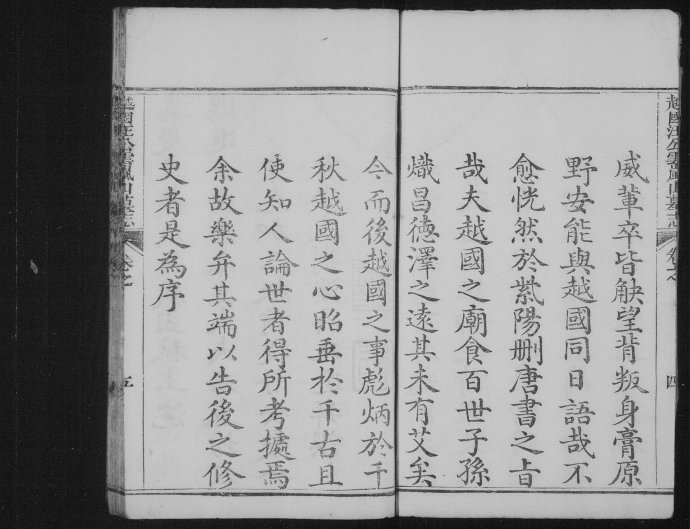 越國汪公雲嵐山墓志
卷之
四
威軰卒皆觖望背叛身膏原
野安能與越國同日語哉不
愈恍然於紫陽刪唐書之旨
哉夫越國之廟食百世子孫
熾昌德澤之遠其未有艾矣
今而後越國之事彪炳於千
秋越國之心昭垂於千古且
使知人論世者得所考據焉
余故樂弁其端以告後之修
史者是為序
越國汪公雲嵐山墓志
卷之
五